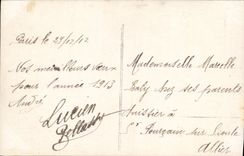 Paris le 29/12/12
Nos meilleurs vœux
pour l'année 1913
André
Lucien
Mademoiselle Marcelle
chez ses parents
Huissier à
St Pourçain sur Sioule
Allier